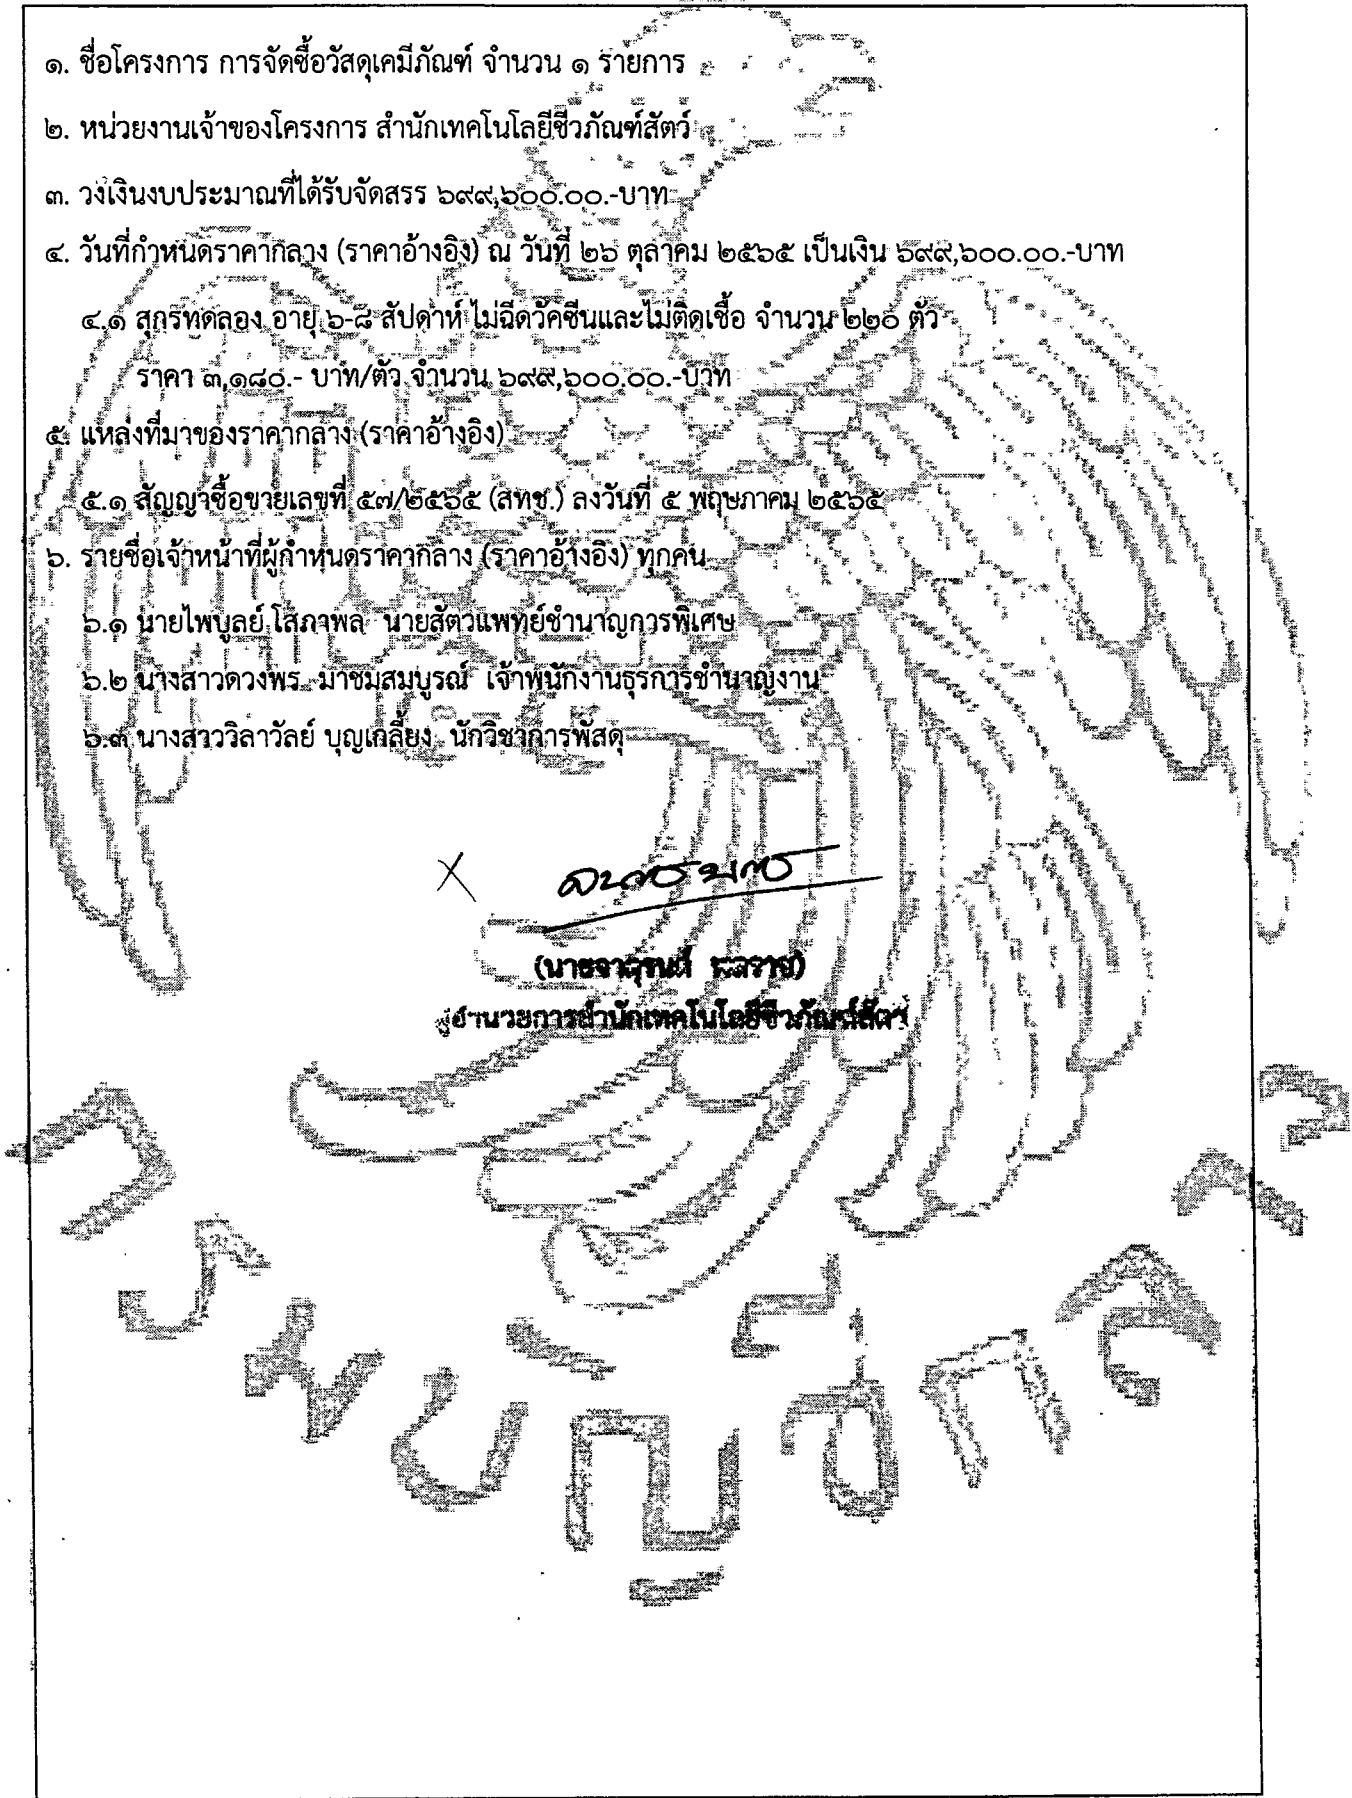 ๑. ชื่อโครงการ การจัดซื้อวัสดุเคมีภัณฑ์ จำนวน ๑ รายการ
๒. หน่วยงานเจ้าของโครงการ สำนักเทคโนโลยีชีวภัณฑ์สัตว์
๓. วงเงินงบประมาณที่ได้รับจัดสรร ๖๙๙,๖๐๐.๐๐.-บาท
๔. วันที่กำหนดราคากลาง (ราคาอ้างอิง) ณ วันที่ ๒๖ ตุลาคม ๒๕๖๕ เป็นเงิน ๖๙๙,๖๐๐.๐๐.-บาท
๔.๑ สุกรทดลอง อายุ ๖-๘ สัปดาห์ ไม่ฉีดวัคซีนและไม่ติดเชื้อ จำนวน ๒๒๐ ตัว
ราคา ๓,๑๘๐.- บาท/ตัว จำนวน ๖๙๙,๖๐๐.๐๐.-บาท
๕. แหล่งที่มาของราคากลาง (ราคาอ้างอิง)
๕.๑ สัญญาซื้อขายเลขที่ ๕๗/๒๕๖๕ (สทช.) ลงวันที่ ๕ พฤษภาคม ๒๕๖๕
๖. รายชื่อเจ้าหน้าที่ผู้กำหนดราคากลาง (ราคาอ้างอิง) ทุกคน
๖.๑ นายไพบูลย์ โสภาพล นายสัตวแพทย์ชำนาญการพิเศษ
๖.๒ นางสาวดวงพร มาชมสมบูรณ์ เจ้าพนักงานธุรการชำนาญงาน
๖.๓ นางสาววิลาวัลย์ บุญเกลี้ยง นักวิชาการพัสดุ
(นายจาตุรนต์ พลราช)
ผู้อำนวยการสำนักเทคโนโลยีชีวภัณฑ์สัตว์